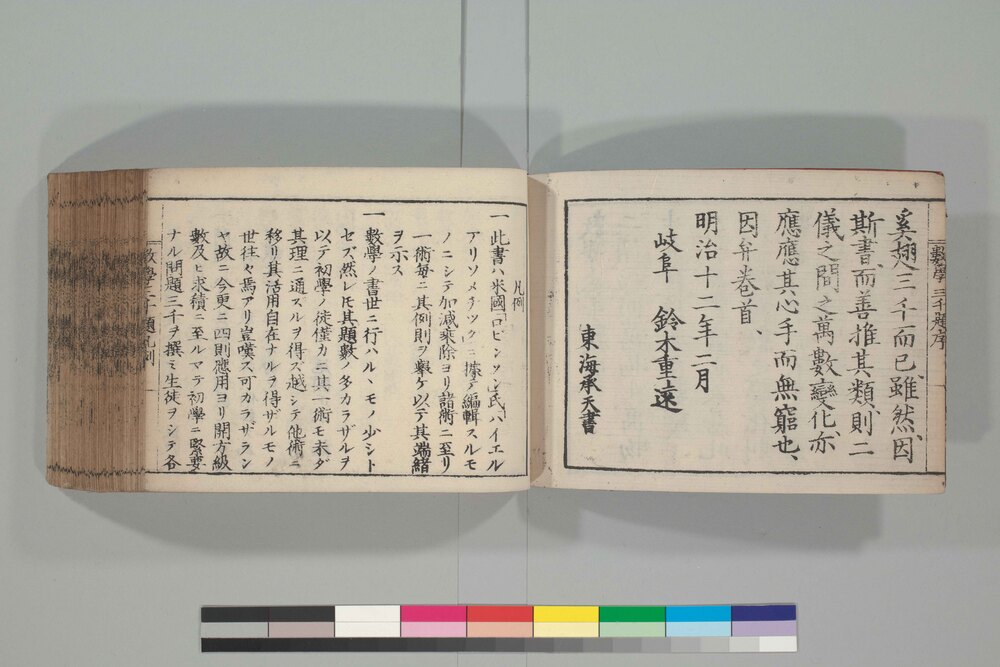 奚翅三千而已雖然因
斯書而善推其類則二
儀之間之萬數變化亦
應應其心手而無窮也、
因弁卷首、
明治十二年二月
岐阜 鈴木重遠
東海承天書
數學三千題序
凡例
一此書ハ米國ロビンソン氏ハイエル
アリソメチックニ據テ編輯スルモ
ノニシテ加減乗除ヨリ諸術ニ至リ
一術每ニ其例則ヲ舉ケ以テ其端緒
ヲ示ス
一數學ノ書世ニ行ハルヽモノ少シト
セズ然レ𪜈其題數ノ多カラザルヲ
以テ初學ノ徒僅カニ其一術モ未ダ
其理ニ通スルヲ得ズ越シテ他術ニ
移リ其活用自在ナルヲ得ザルモノ
世往々焉アリ豈嘆ス可カラザラン
ヤ故ニ今更ニ四則應用ヨリ開方級
數及ヒ求積ニ至ルマテ初學ニ緊要
ナル問題三千ヲ撰ミ生徒ヲシテ各